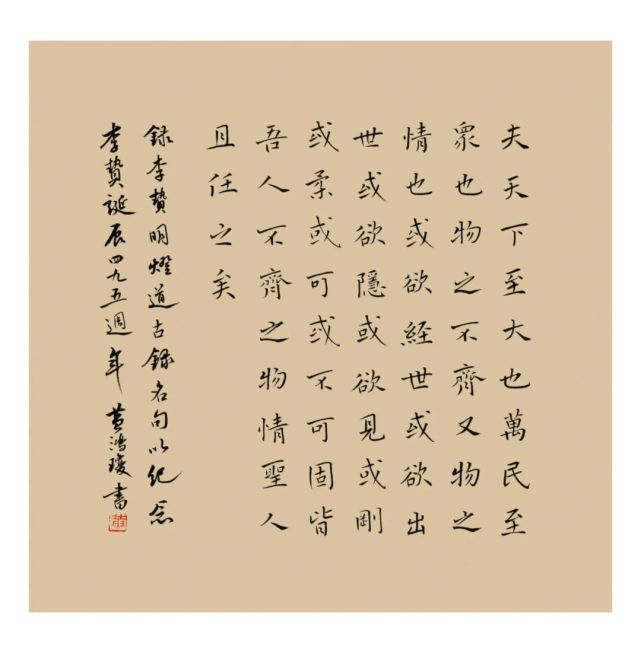 夫天下至大也萬民至
衆也物之不齊又物之
情也或欲經世或欲出
世或欲隱或欲見或剛
或柔或可或不可固皆
吾人不齊之物情聖人
且任之矣
錄李贄明燈道古錄名句以紀念
李贄誕辰四九五週年黃鴻瓊書